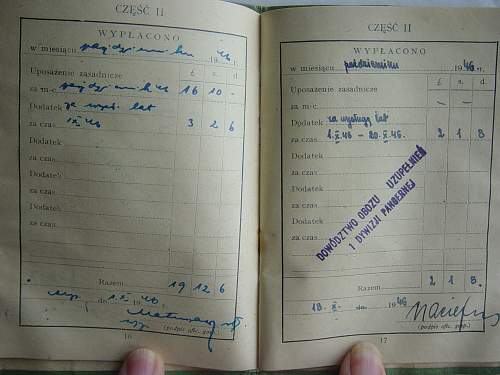 CZĘŚĆ II
WYPŁACONO
w miesiącu październiku 1946
Uposażenie zasadnicze £ s. d.
za m-c październik 46 16 10 -
Dodatek za wysł. lat
za czas 3 2 6
Dodatek
za czas
Dodatek
za czas
Dodatek
za czas
Dodatek
za czas
Razem 19 12 6
dn. 1.X. 46
(podpis ofic. gosp.)
16
CZĘŚĆ II
WYPŁACONO
w miesiącu październiku 1946 r.
Uposażenie zasadnicze £ s. d.
za m-c — —
Dodatek za wysługę lat
za czas 1.X.46 – 20.X.46. 2 1 8
Dodatek
za czas
Dodatek
za czas
Dodatek
za czas
Dodatek
za czas
DOWÓDZTWO OBOZU UZUPEŁNIEŃ
1 DYWIZJI PANCERNEJ
Razem 2 1 8.
dn. 1946
(podpis ofic. gosp.)
17